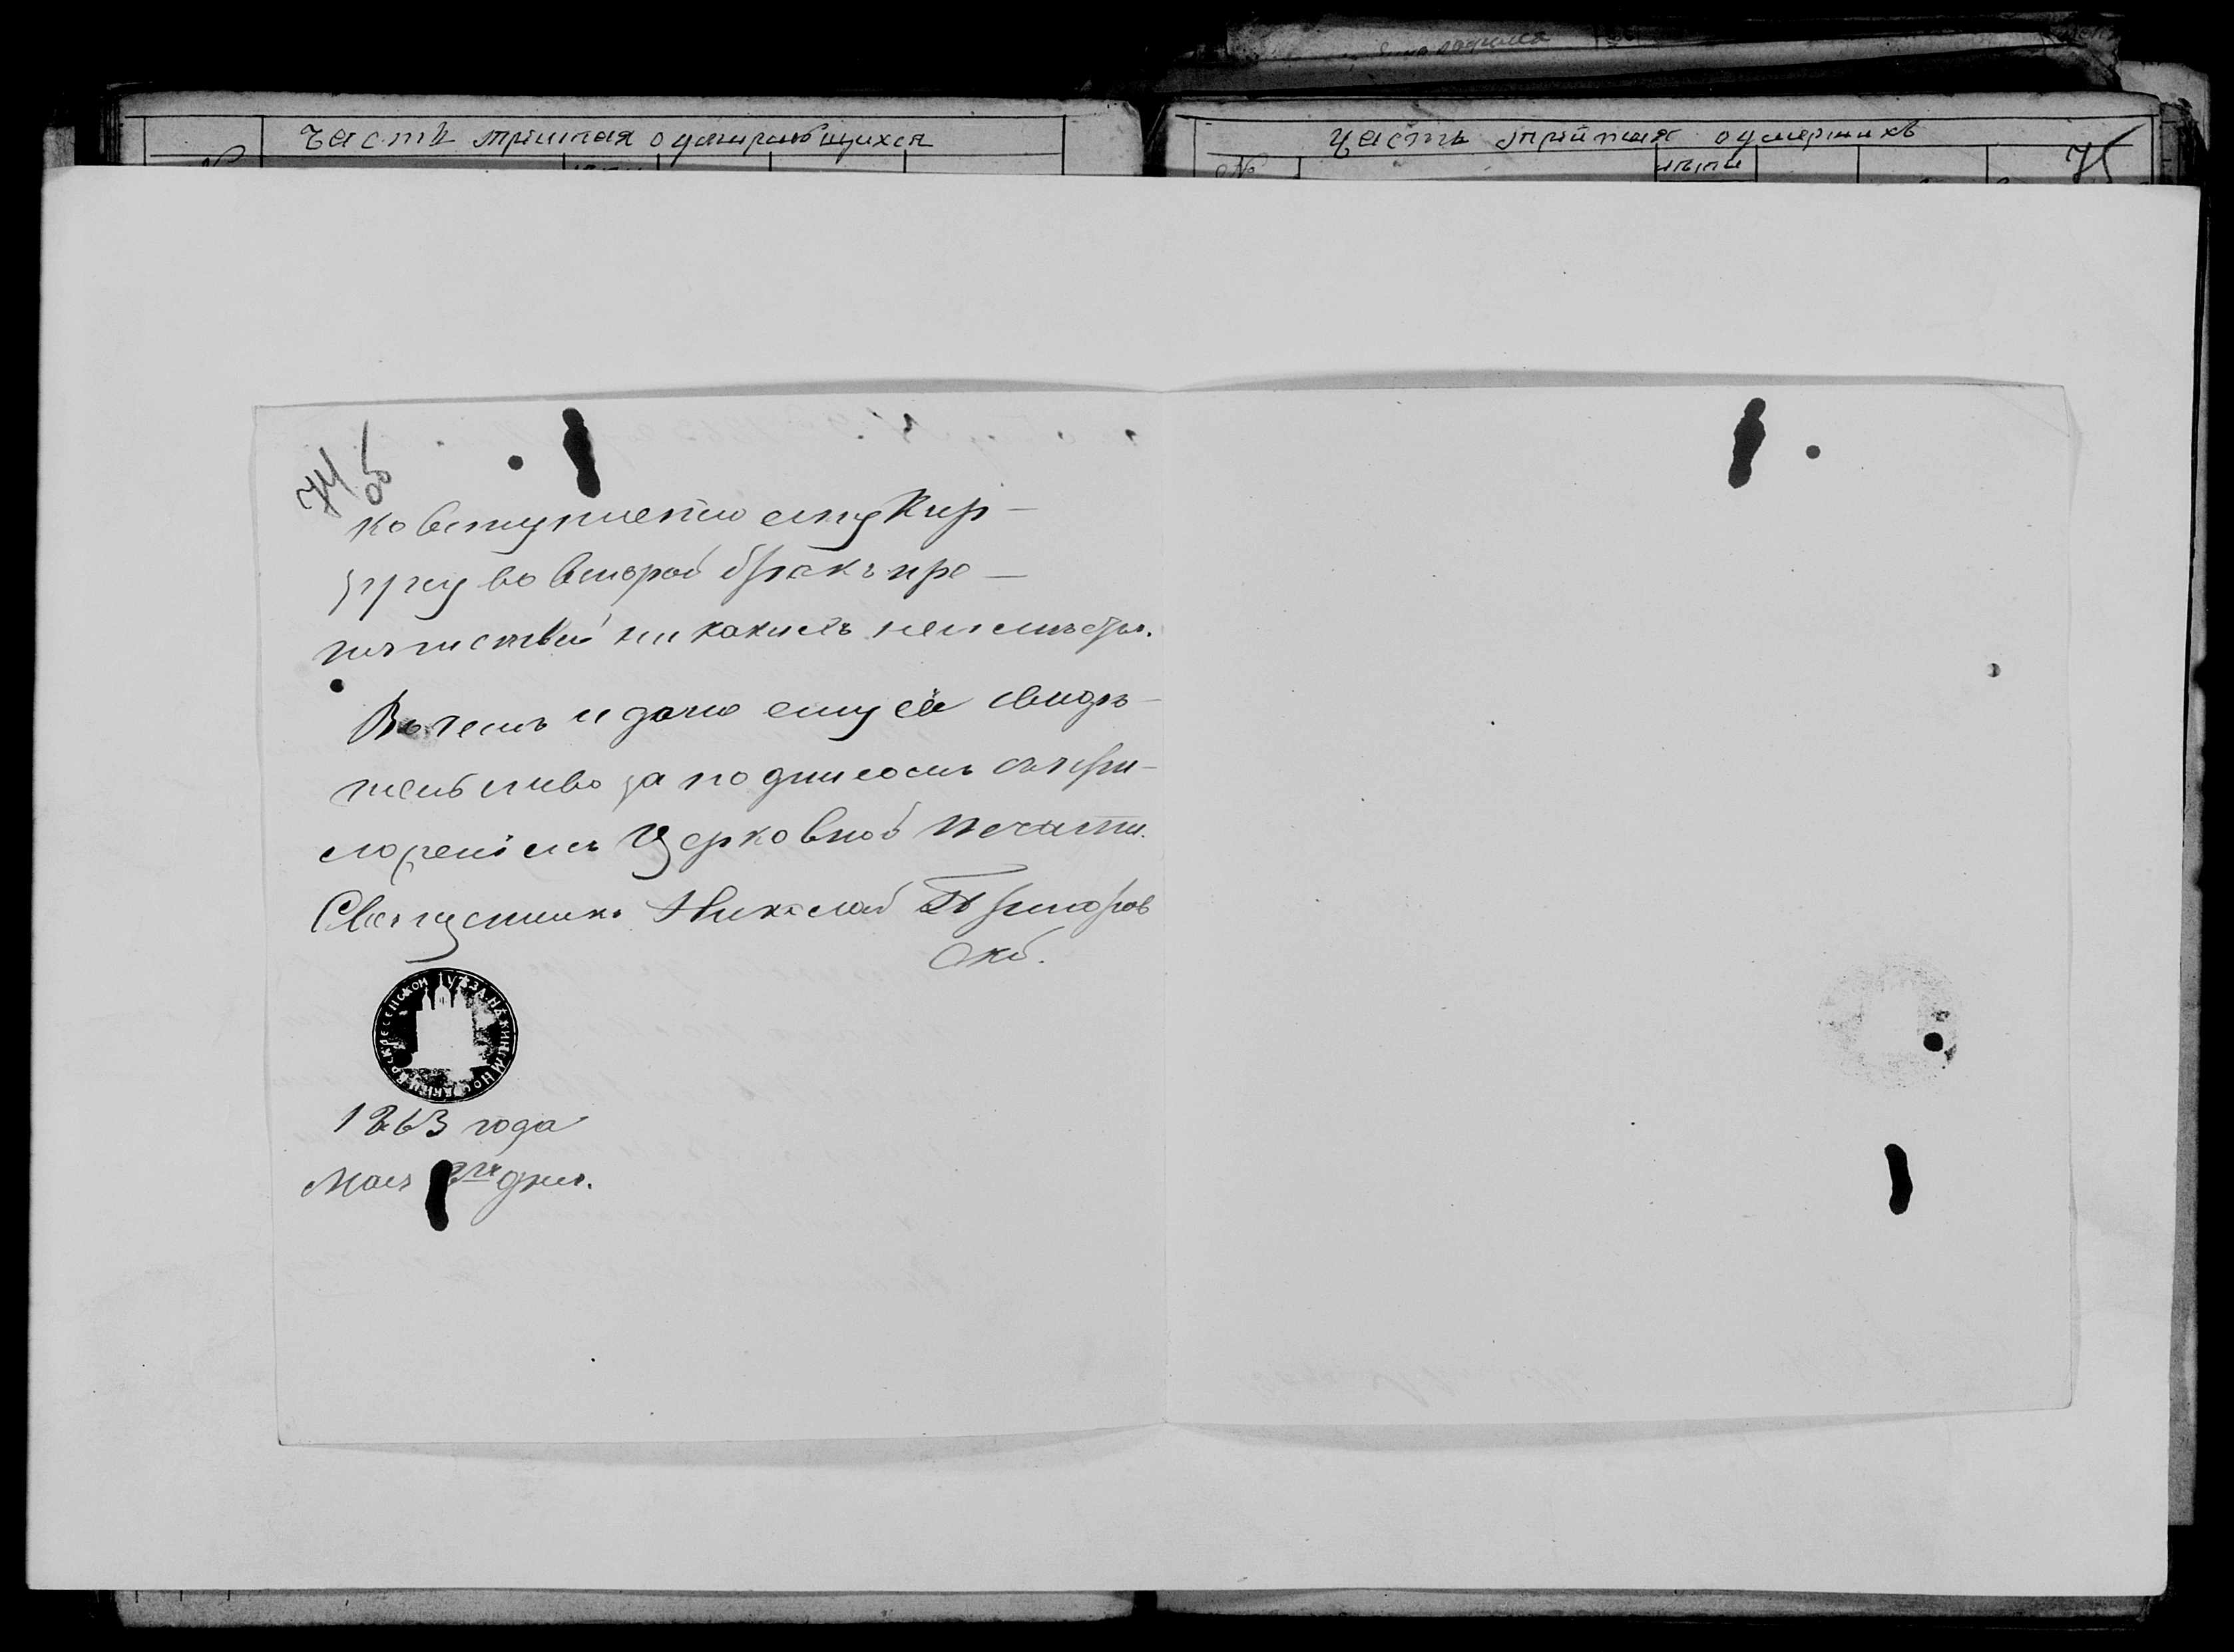 Часть третая о умирающихся
Часть третая о умершихъ
№
№
лѣты
75
74 об
ко вступленію ему Кир-
у во второй бракъ пре-
пятствий ни какихъ неимѣется.
Въ чемъ и дано ему сіе свидѣ-
тельство за подписомъ съ при-
ложеніемъ Церковной печати.
Священникъ Николай
1863 года
Мая дня.